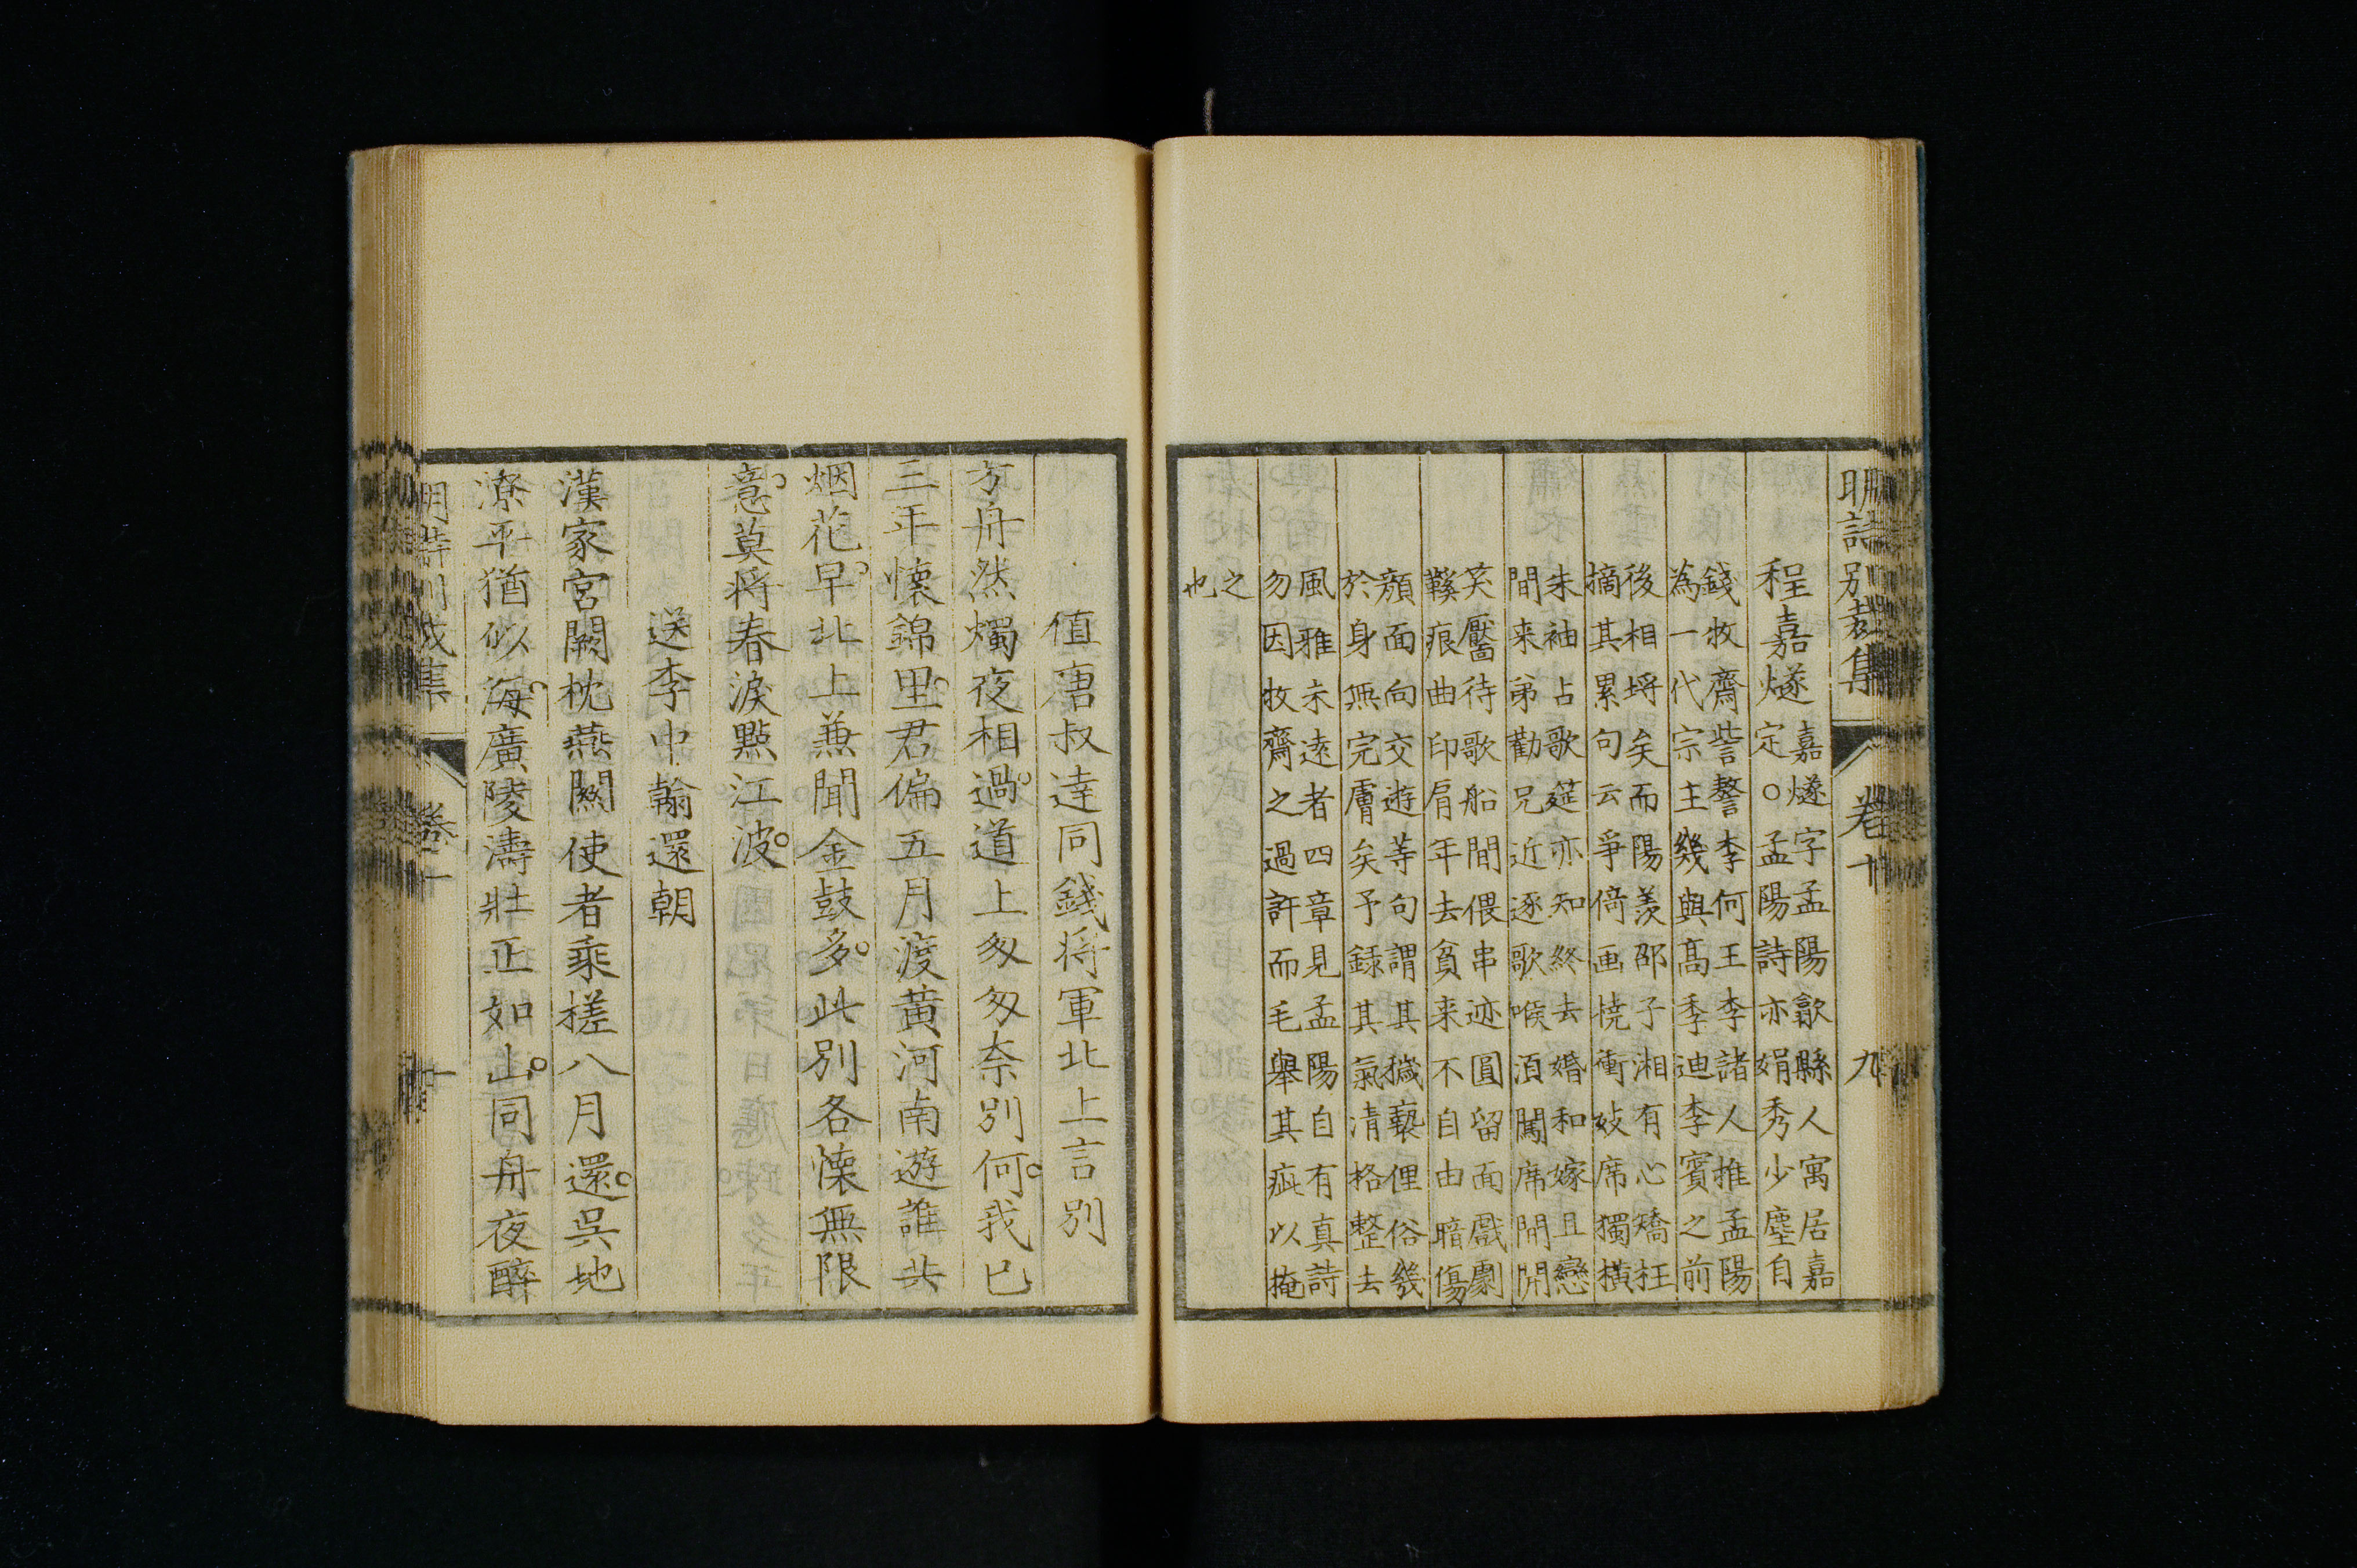 明詩別裁集 卷十 九
程嘉燧 嘉燧字孟陽歙縣人寓居嘉
定○孟陽詩亦娟秀少塵自
錢牧齋訾謷李何王李諸人推孟陽
為一代宗主幾與高季迪李賓之前
後相埒矣而陽羨邵子湘有心矯枉
摘其累句云爭倚画橈衝妓席獨橫
朱袖占歌筵亦知終去婚和嫁且戀
間来弟勸兄近逐歌喉須闖席閒閒
笑靨待歌船間偎串迹圓留面戲劇
鞵痕曲印肩年去貧来不自由暗傷
顏面向交遊等句謂其穢褻俚俗幾
於身無完膚矣予錄其氣清格整去
風雅未遠者四章見孟陽自有真詩
勿因牧齋之過許而毛舉其疵以掩
之
也
值唐叔達同錢将軍北上言別
方舟然燭夜相過道上匆匆奈別何我已
三年懷錦里君偏五月渡黃河南遊誰共
烟花早北上兼聞金鼓多此別各懷無限
意莫将春淚點江波
送李中翰還朝
漢家宮闕枕燕關使者乘槎八月還吳地
潦平猶似海廣陵濤壯正如山同舟夜醉